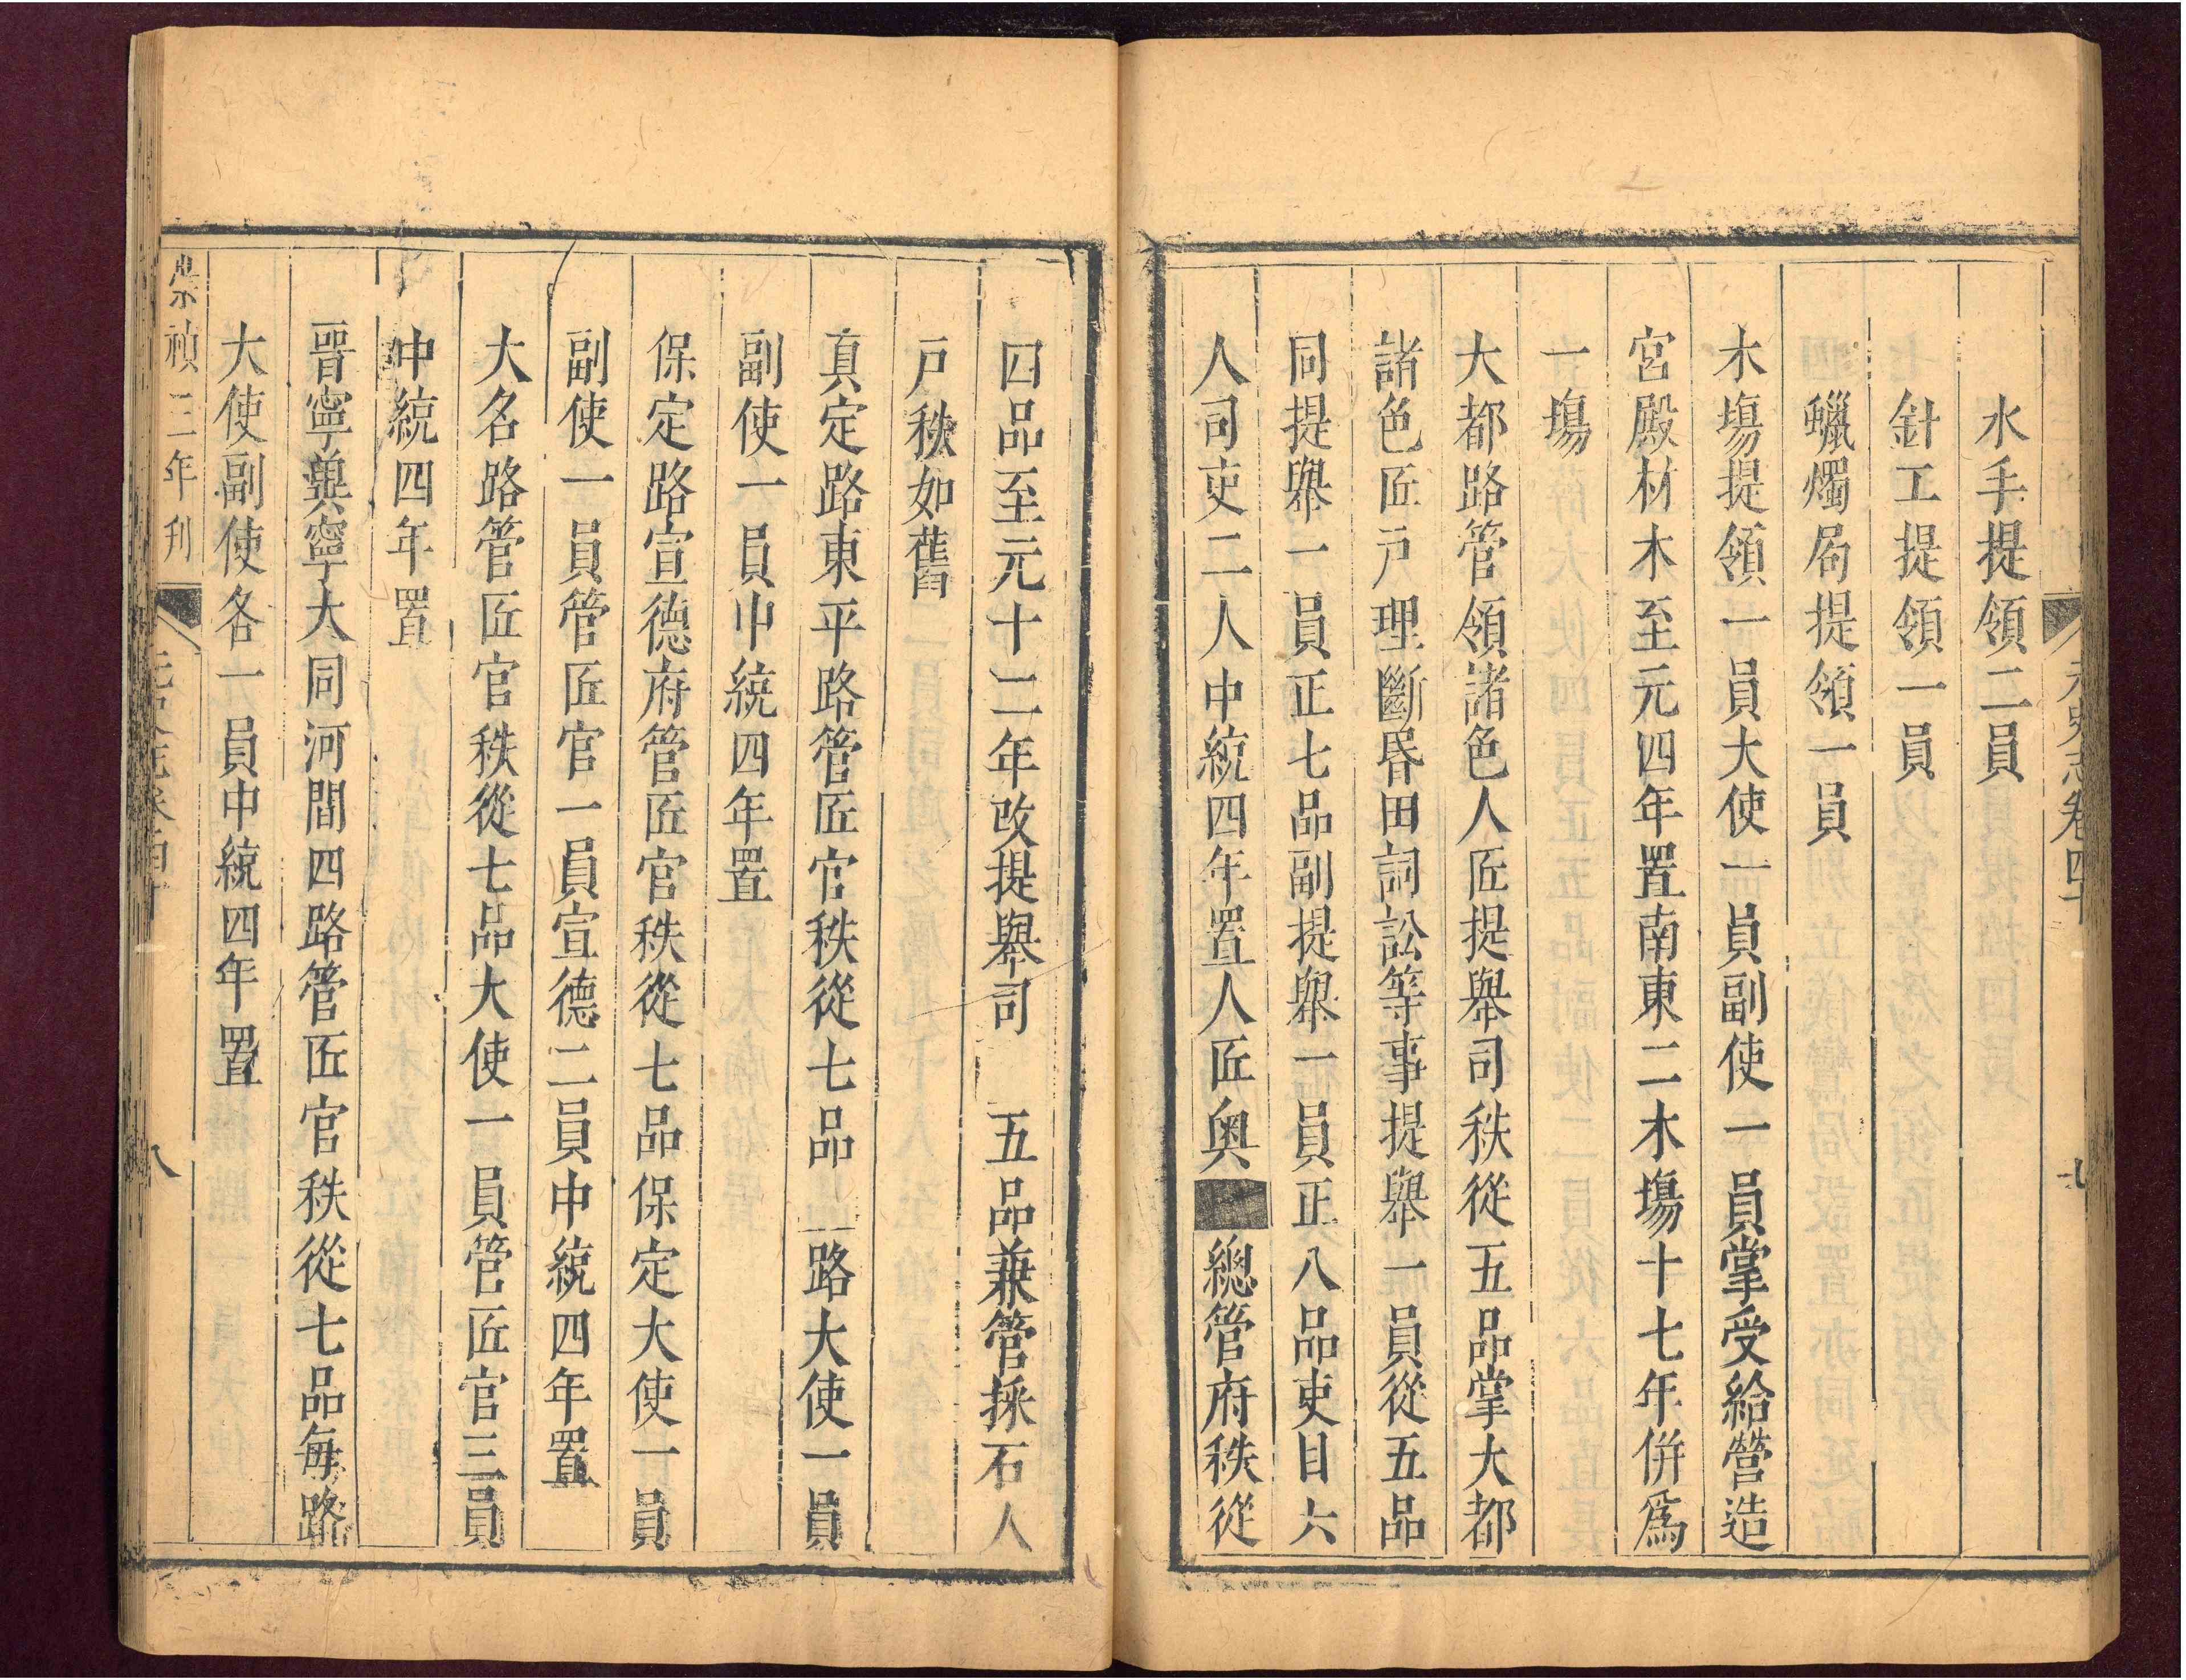 元史志卷四十
七
水手提領二員
針工提領一員
蠟燭局提領一員
木塲提領一員大使一員副使一員掌受給營造
宮殿材木至元四年置南東二木塲十七年併爲
一塲
大都路管領諸色人匠提舉司秩從五品掌大都
諸色匠戸理斷昏田詞訟等事提舉一員從五品
同提舉一員正七品副提舉一員正八品吏目六
人司吏二人中統四年置人匠奥 總管府秩從
四品至元十二年改提舉司 五品兼管採石人
戸秩如舊
真定路東平路管匠官秩從七品 路大使一員
副使一員中統四年置
保定路宣德府管匠官秩從七品保定大使一員
副使一員管匠官一員宣德二員中統四年置
大名路管匠官秩從七品大使一員管匠官三員
中統四年置
晉寧兾寧大同河間四路管匠官秩從七品每路
大使副使各一員中統四年置
崇禎三年刋
八